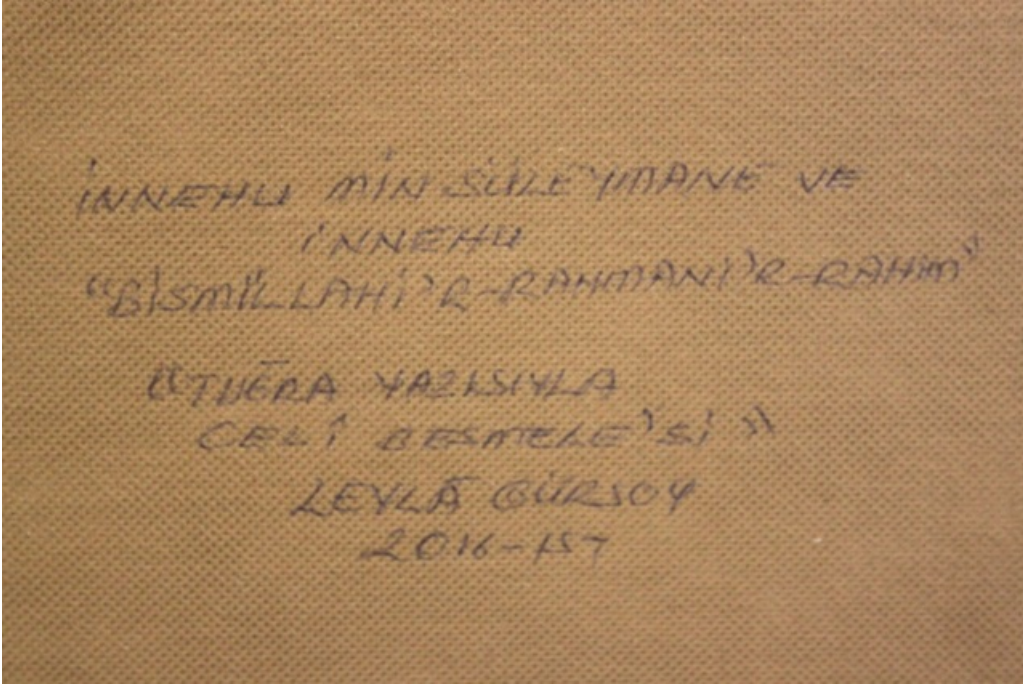 İNNEHU MİN SÜLEYMANE VE
İNNEHU
"BİSMİLLAHİ'R-RAHMANİ'R-RAHİM"
"TUĞRA YAZISIYLA
CELÎ BESMELE'Sİ"
LEYLÂ GÜRSOY
2016-İST